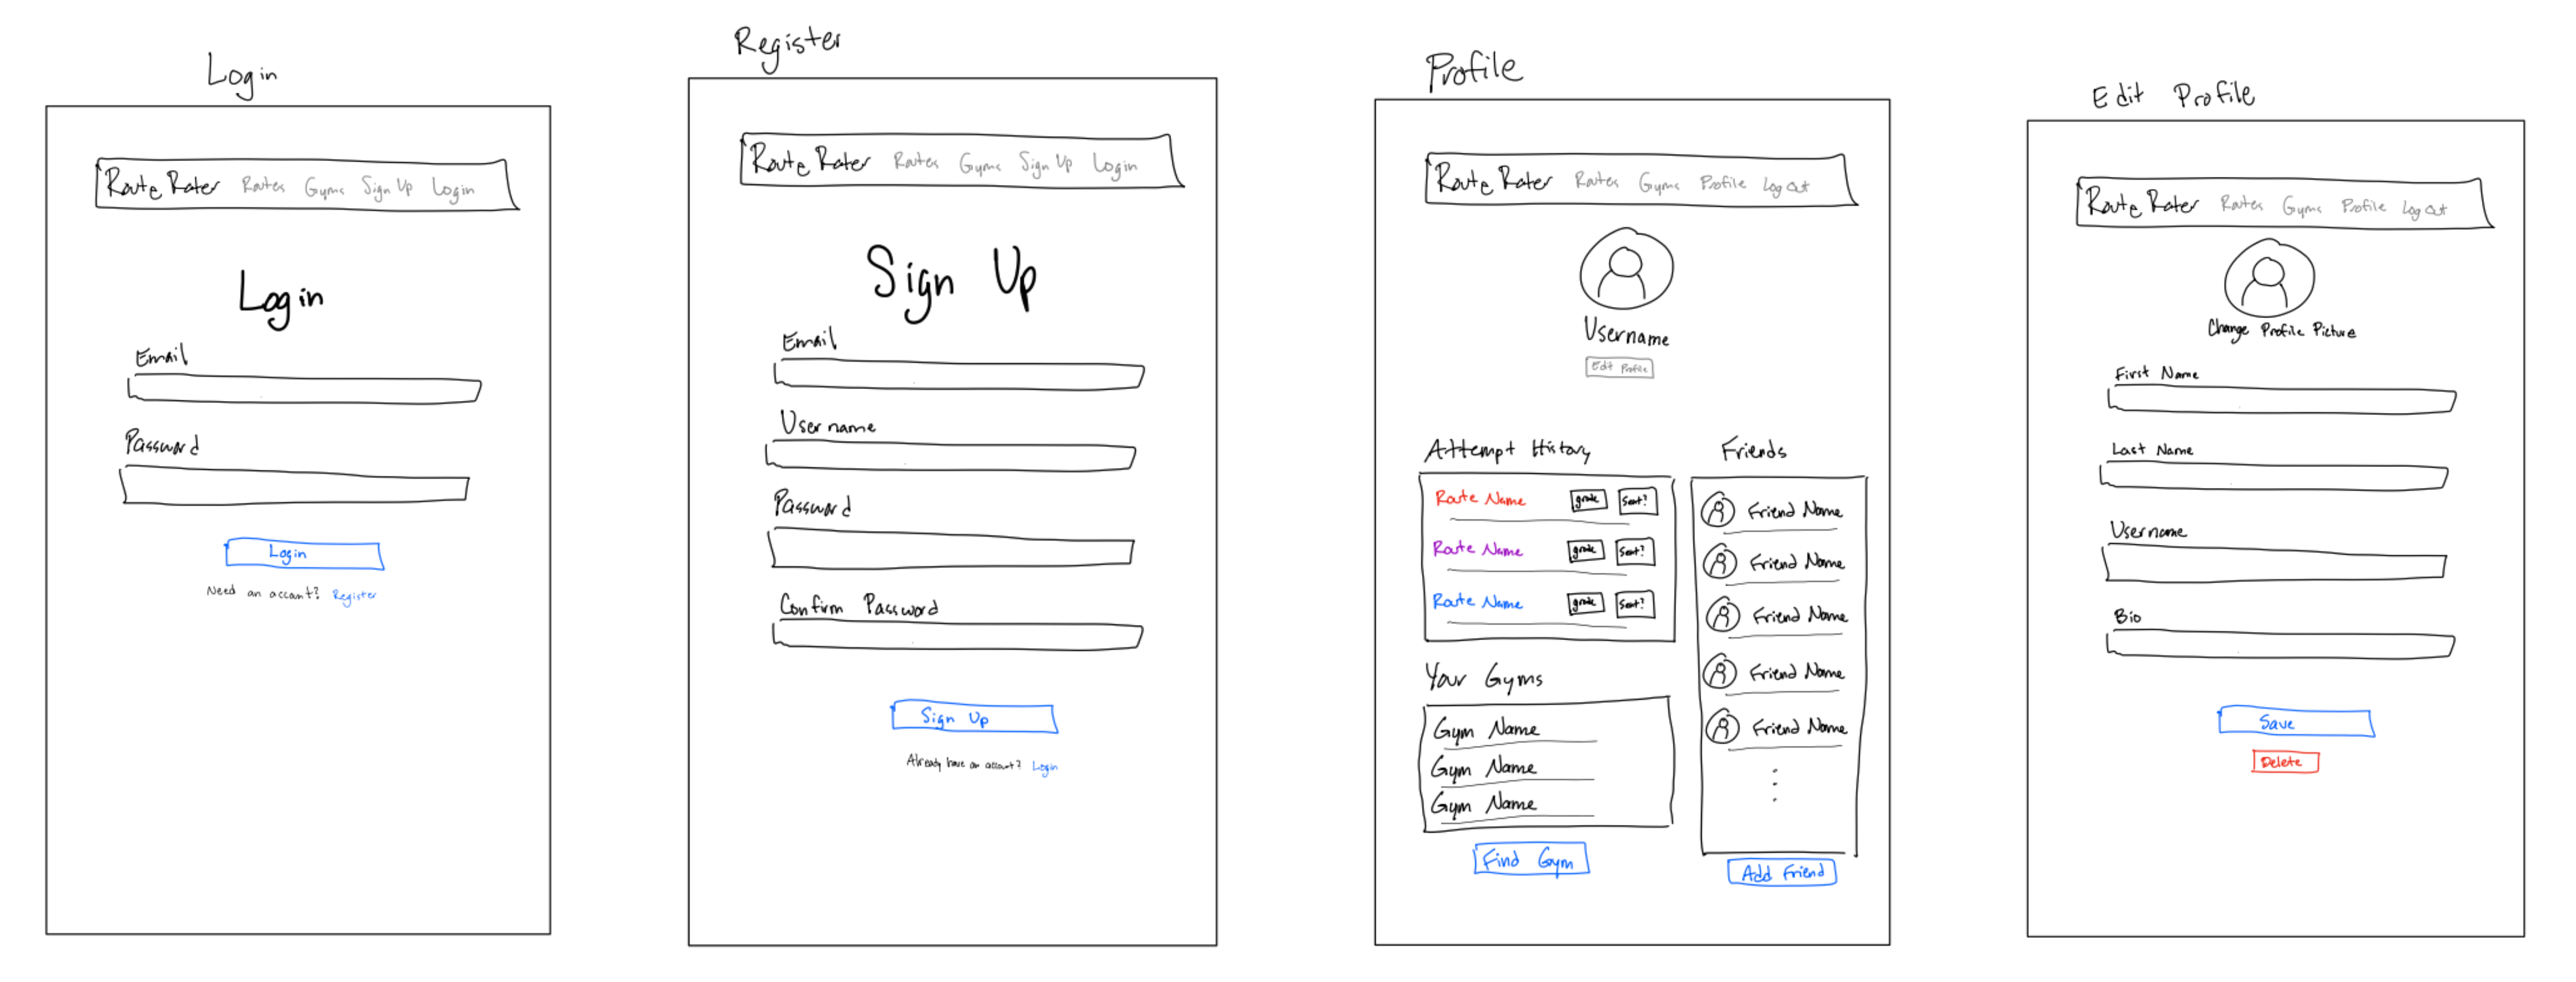 Login
Route Rater Routes Gyms Sign Up Login
Login
Email
Password
Login
Need an account? Register
Register
Route Rater Routes Gyms Sign Up Login
Sign Up
Email
Username
Password
Confirm Password
Sign Up
Already have an account? Login
Profile
Route Rater Routes Gyms Profile Log Out
Username
Edit Profile
Attempt History
Route Name grade Sent?
Route Name grade Sent?
Route Name grade Sent?
Your Gyms
Gym Name
Gym Name
Gym Name
Find Gym
Friends
Friend Name
Friend Name
Friend Name
Friend Name
Friend Name
Add Friend
Edit Profile
Route Rater Routes Gyms Profile Log Out
Change Profile Picture
First Name
Last Name
Username
Bio
Save
Delete